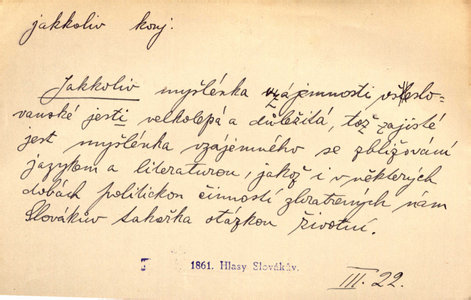 jakkoliv konj.
Jakkoliv myšlénka vzájemnosti všeslo-
vanské jesti velkolepá a důležitá, tož zajisté
jest myšlénka vzájemného se zbližování
jazykom a literaturou, jakož i v některých
dobách politickou činností zbratřených nám
Slovákův takořka otázkou životní.
1861. Hlasy Slovákův.
III. 22.